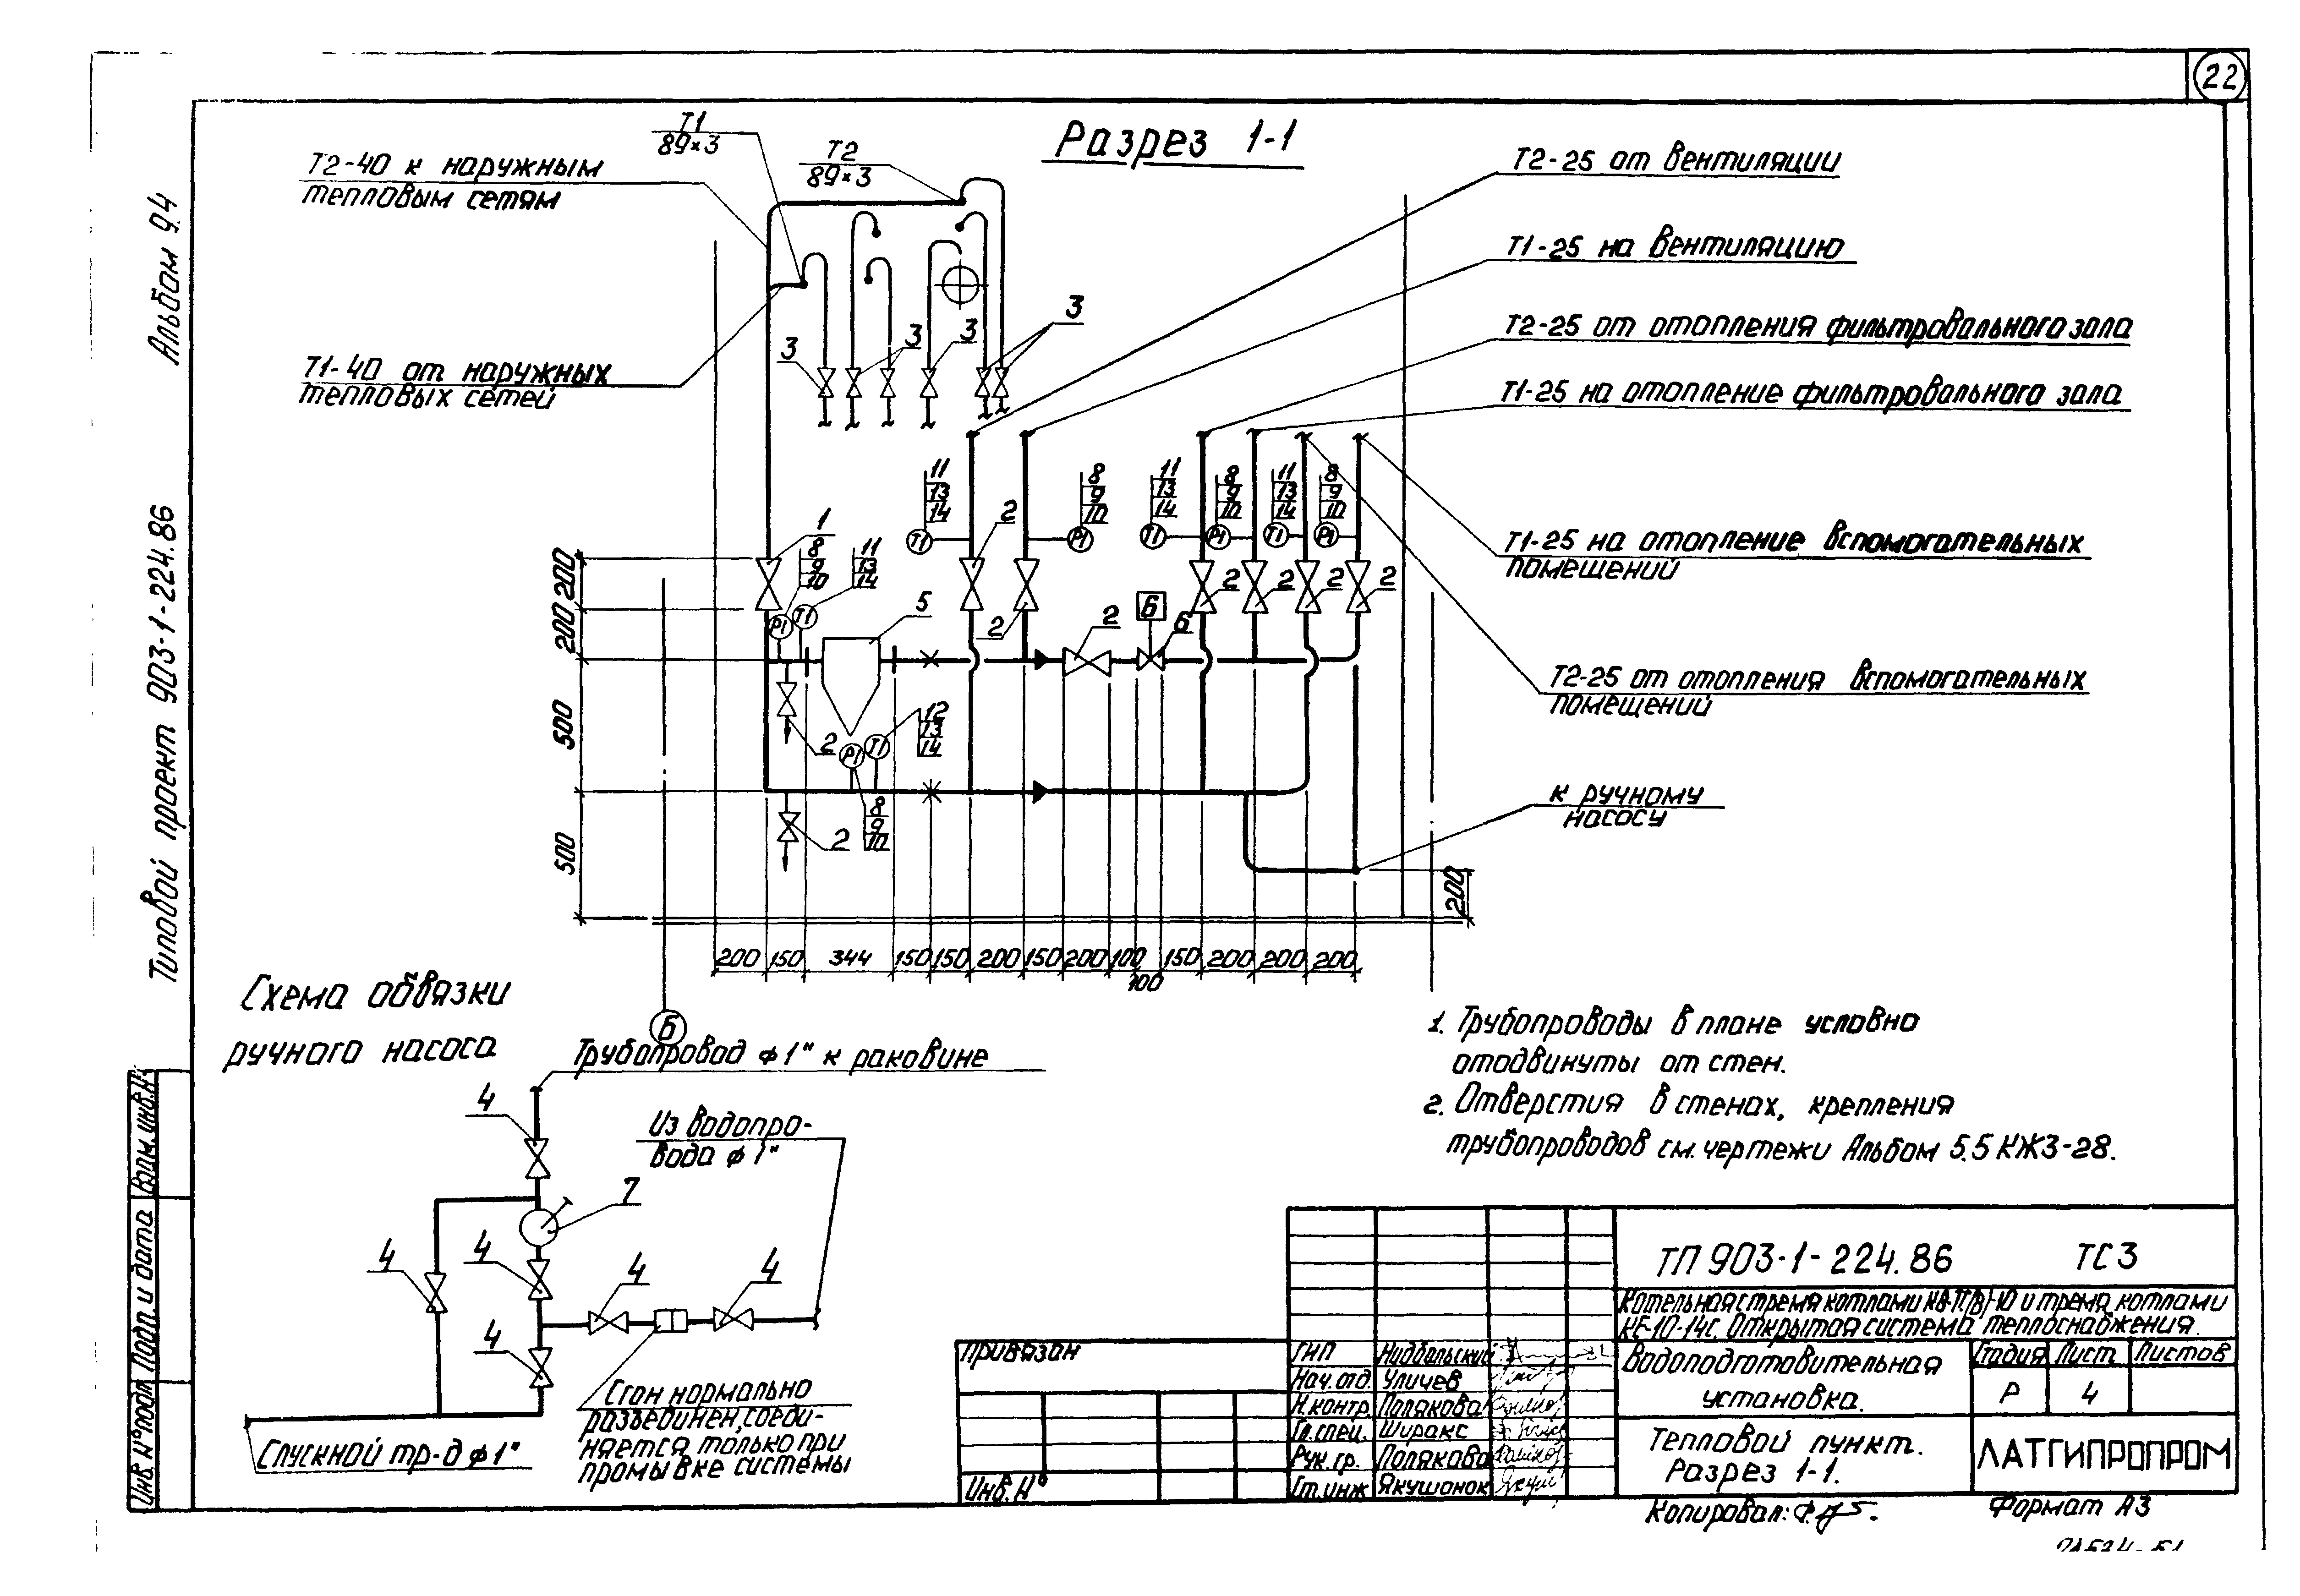 22
Альбом 9.4
Типовой проект 903-1-224.86
Разрез 1-1
Т1
89×3
Т2
89×3
Т2-40 к наружным
тепловым сетям
Т1-40 от наружных
тепловых сетей
Т2-25 от вентиляции
Т1-25 на вентиляцию
Т2-25 от отопления фильтровального зала
Т1-25 на отопление фильтровального зала
Т1-25 на отопление вспомогательных
помещений
Т2-25 от отопления вспомогательных
помещений
к ручному
насосу
3
3
3
3
11
13
14
8
9
10
11
13
14
8
9
10
11
13
14
8
9
10
Т1
Р1
Т1
Р1
Т1
Р1
1
8
9
10
11
13
14
Р1
Т1
5
2
2
2
Б
6
2
2
2
2
2
12
13
14
Р1
Т1
8
9
10
2
200
200
500
500
200
200 150 344 150 150 200 150 200 100 150 200 200 200
100
Б
Схема обвязки
ручного насоса
Трубопровод ф1" к раковине
Из водопро-
вода ф1"
4
7
4
4
4
4
4
Спускной тр-д ф1"
Сгон нормально
разъединен, соеди-
няется только при
промывке системы
1. Трубопроводы в плане условно
отодвинуты от стен.
2. Отверстия в стенах, крепления
трубопроводов см. чертежи Альбом 5.5 КЖ3-28.
Взам. инв. №
Подп. и дата
Инв. № подл.
ТП 903-1-224.86 ТС3
Котельная с тремя котлами КВ-Т(В)-10 и тремя котлами
КЕ-10-14с. Открытая система теплоснабжения.
Водоподготовительная
установка.
Стадия Лист Листов
Р 4
Тепловой пункт.
Разрез 1-1.
ЛАТГИПРОПРОМ
Привязан
Инв. №
ГИП Нидбальский
Нач. отд. Уличев
Н. контр. Полякова
Гл. спец. Ширакс
Рук. гр. Полякова
Ст. инж Якушонок
Копировал:
Формат А3